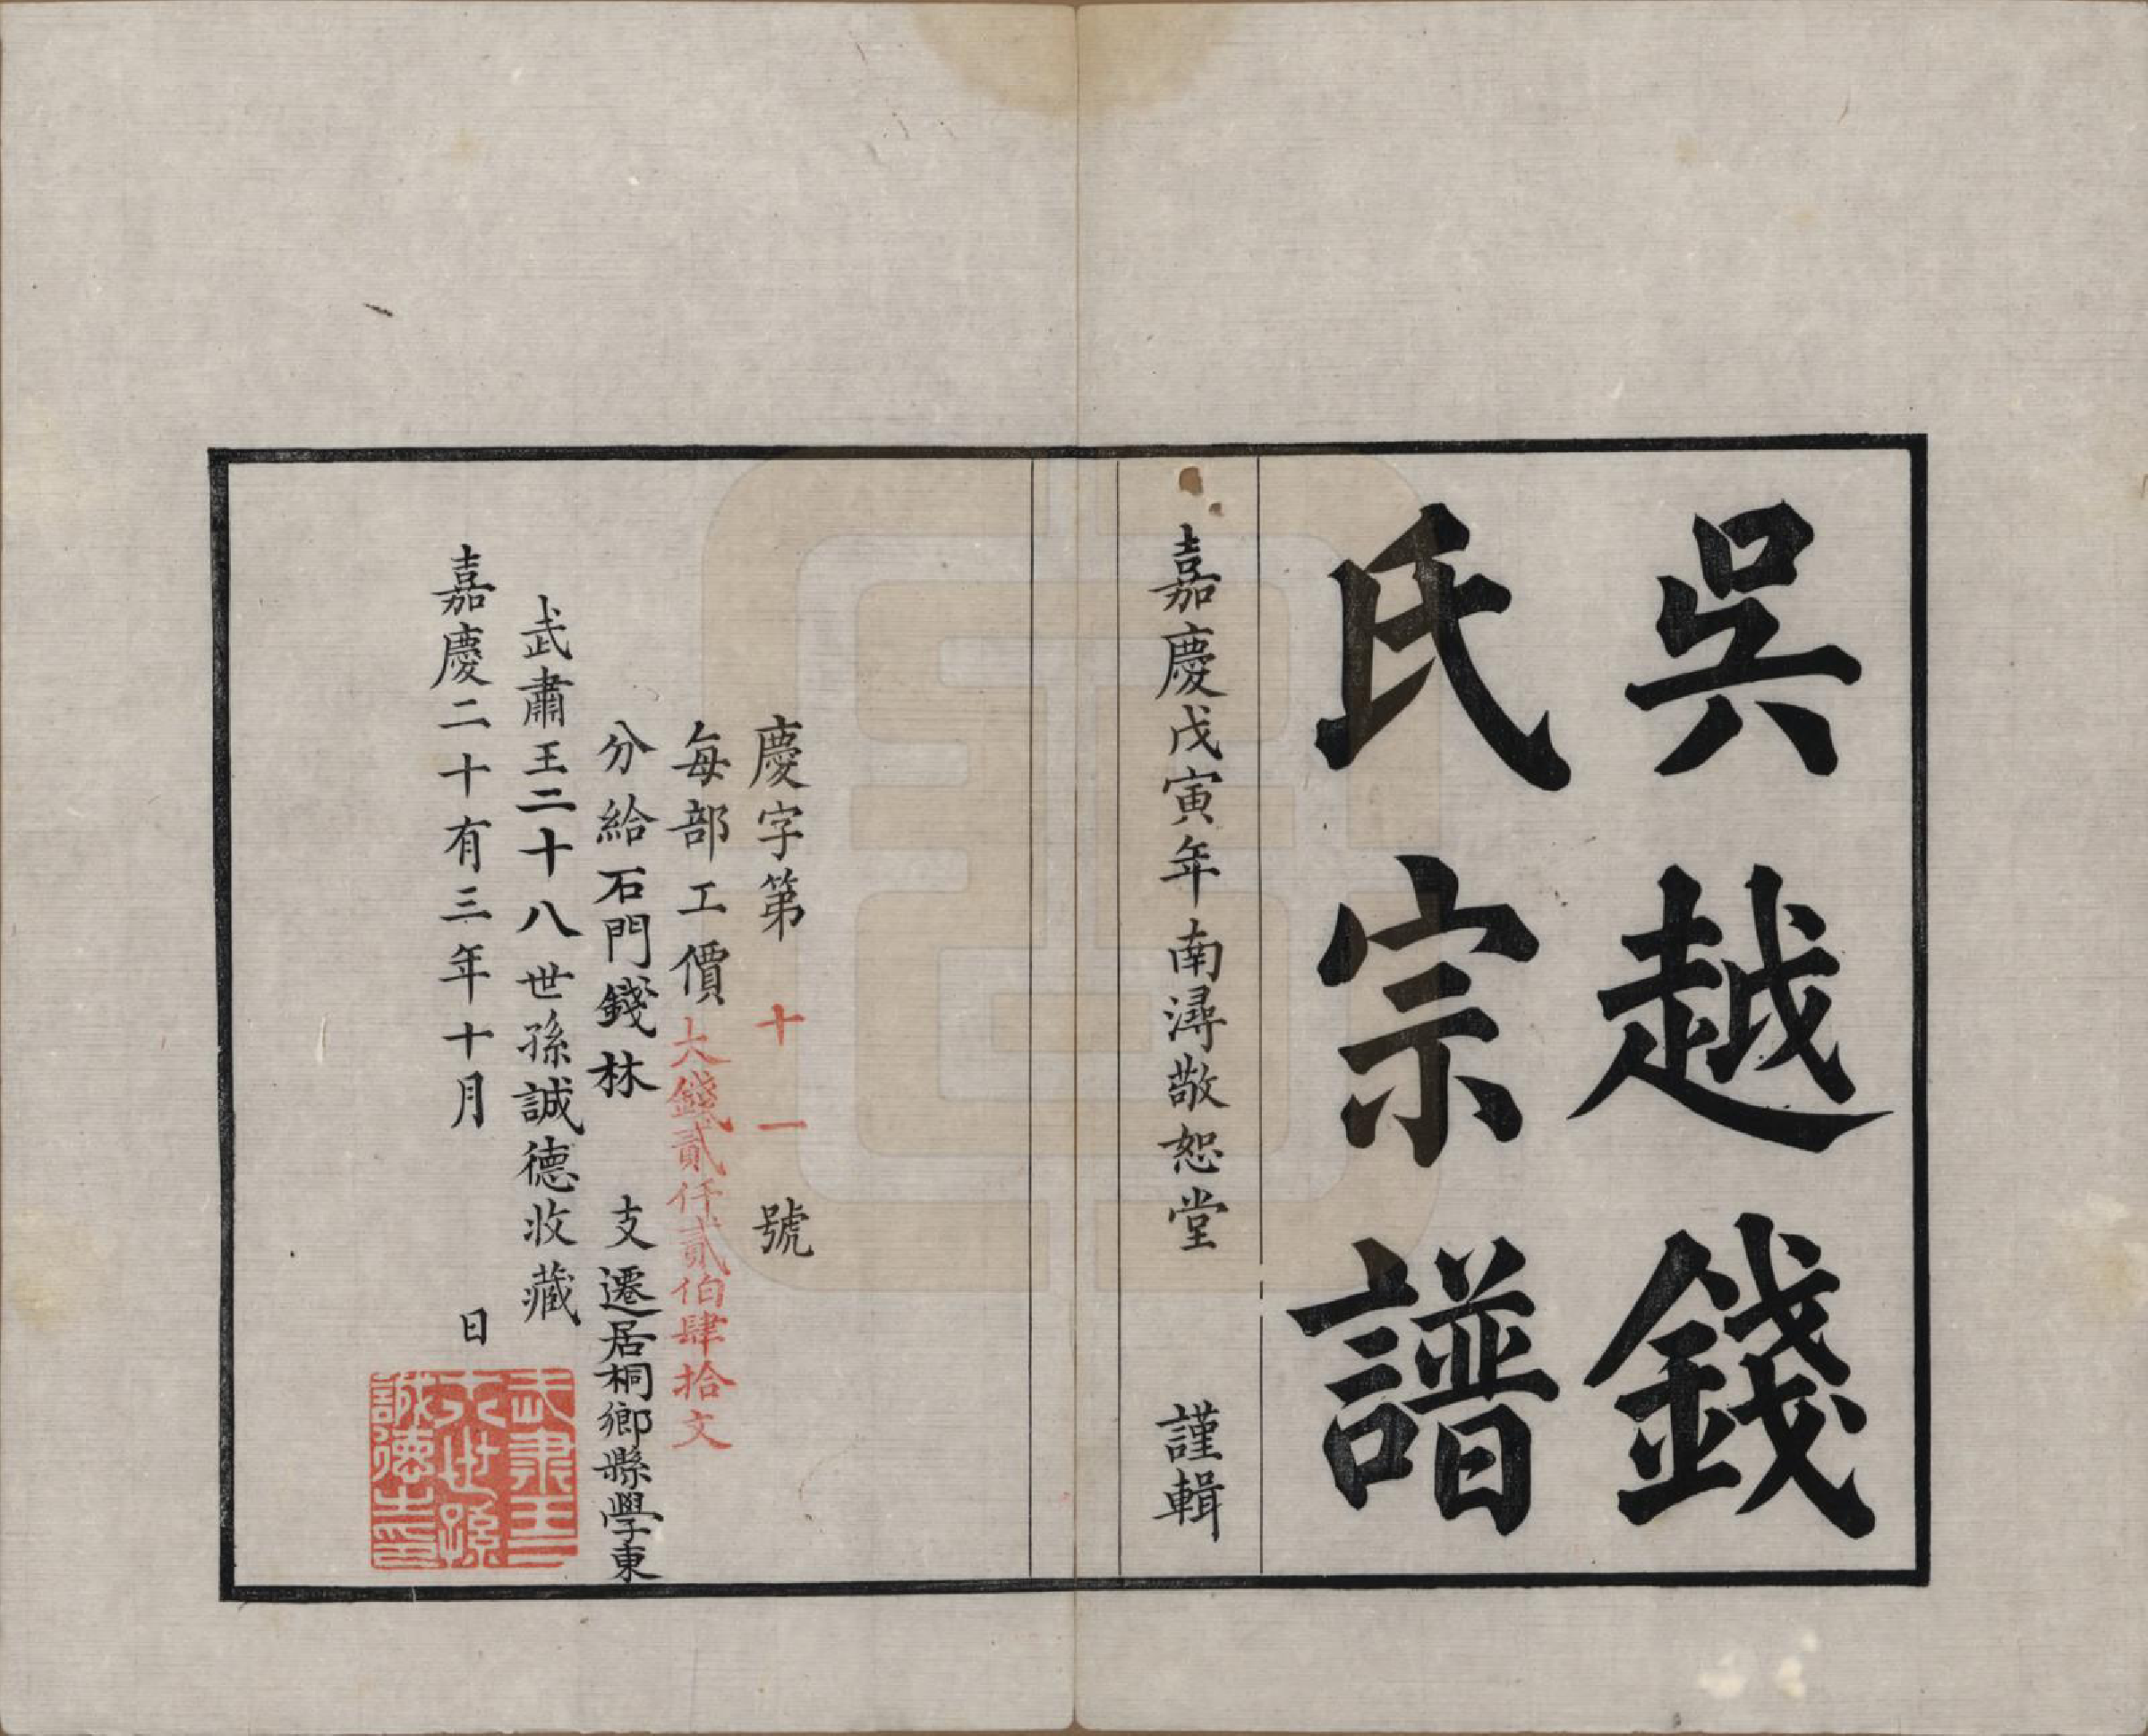 吳越錢
氏宗譜
嘉慶戊寅年南潯敬恕堂 謹輯
慶字第 十一 號
每部工價大錢貳仟貳伯肆拾文
分給石門錢林 支遷居桐鄉縣學東
武肅王二十八世孫誠德收藏
嘉慶二十有三年十月 日
武肅王二
十八世孫
誠德之印